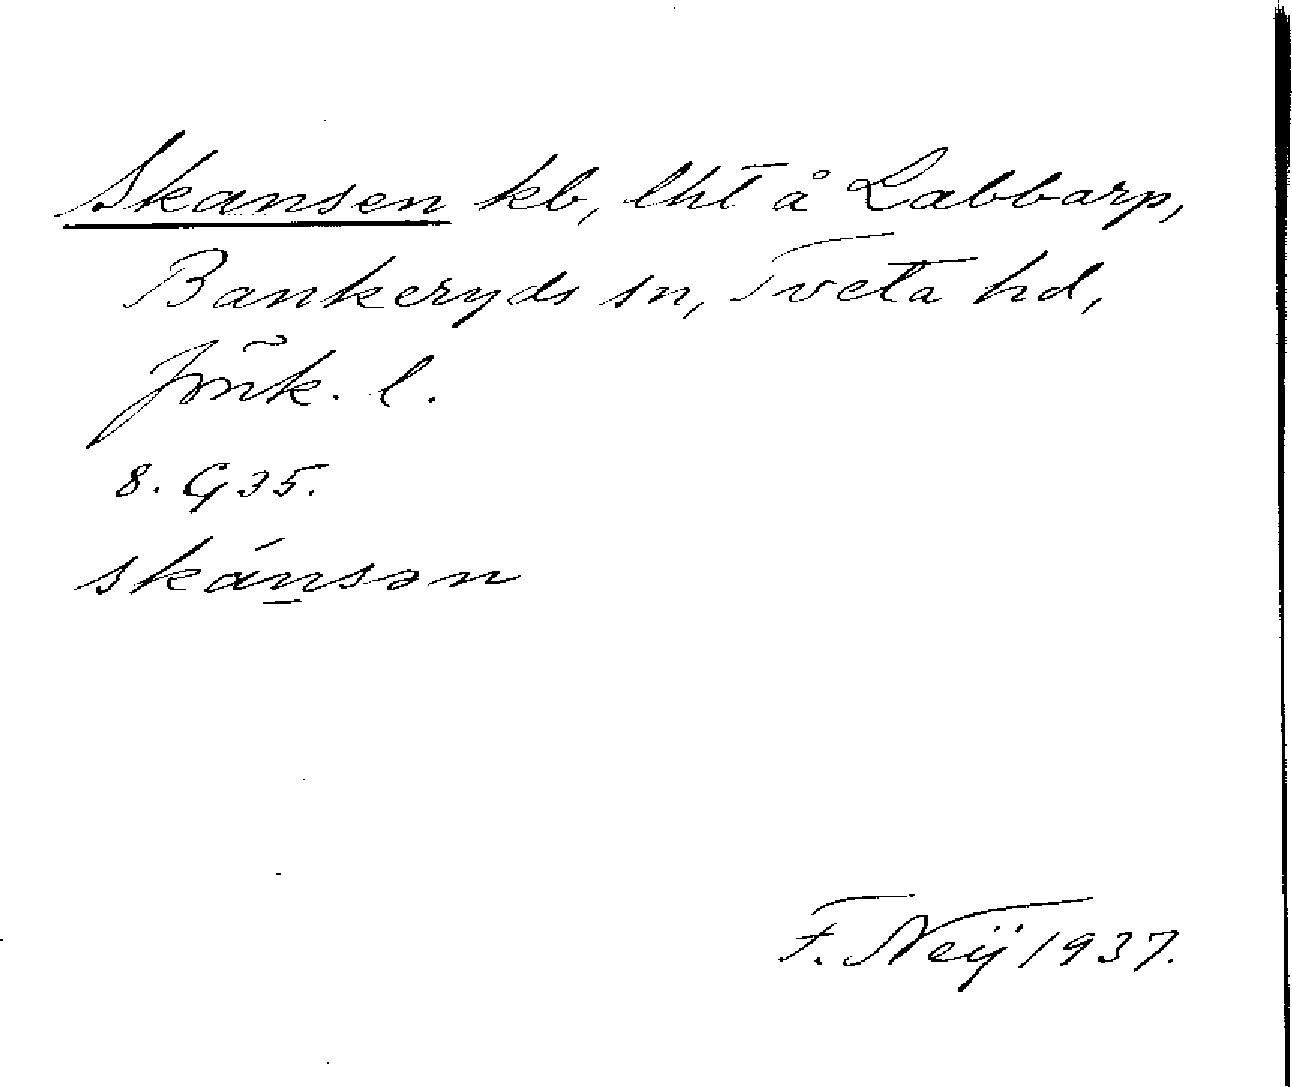 Skansen kb, lht å Labbarp,
Bankeryds sn, Tveta hd,
Jönk. l.
8. G 35.
skánsən
F. Neÿ 1937.